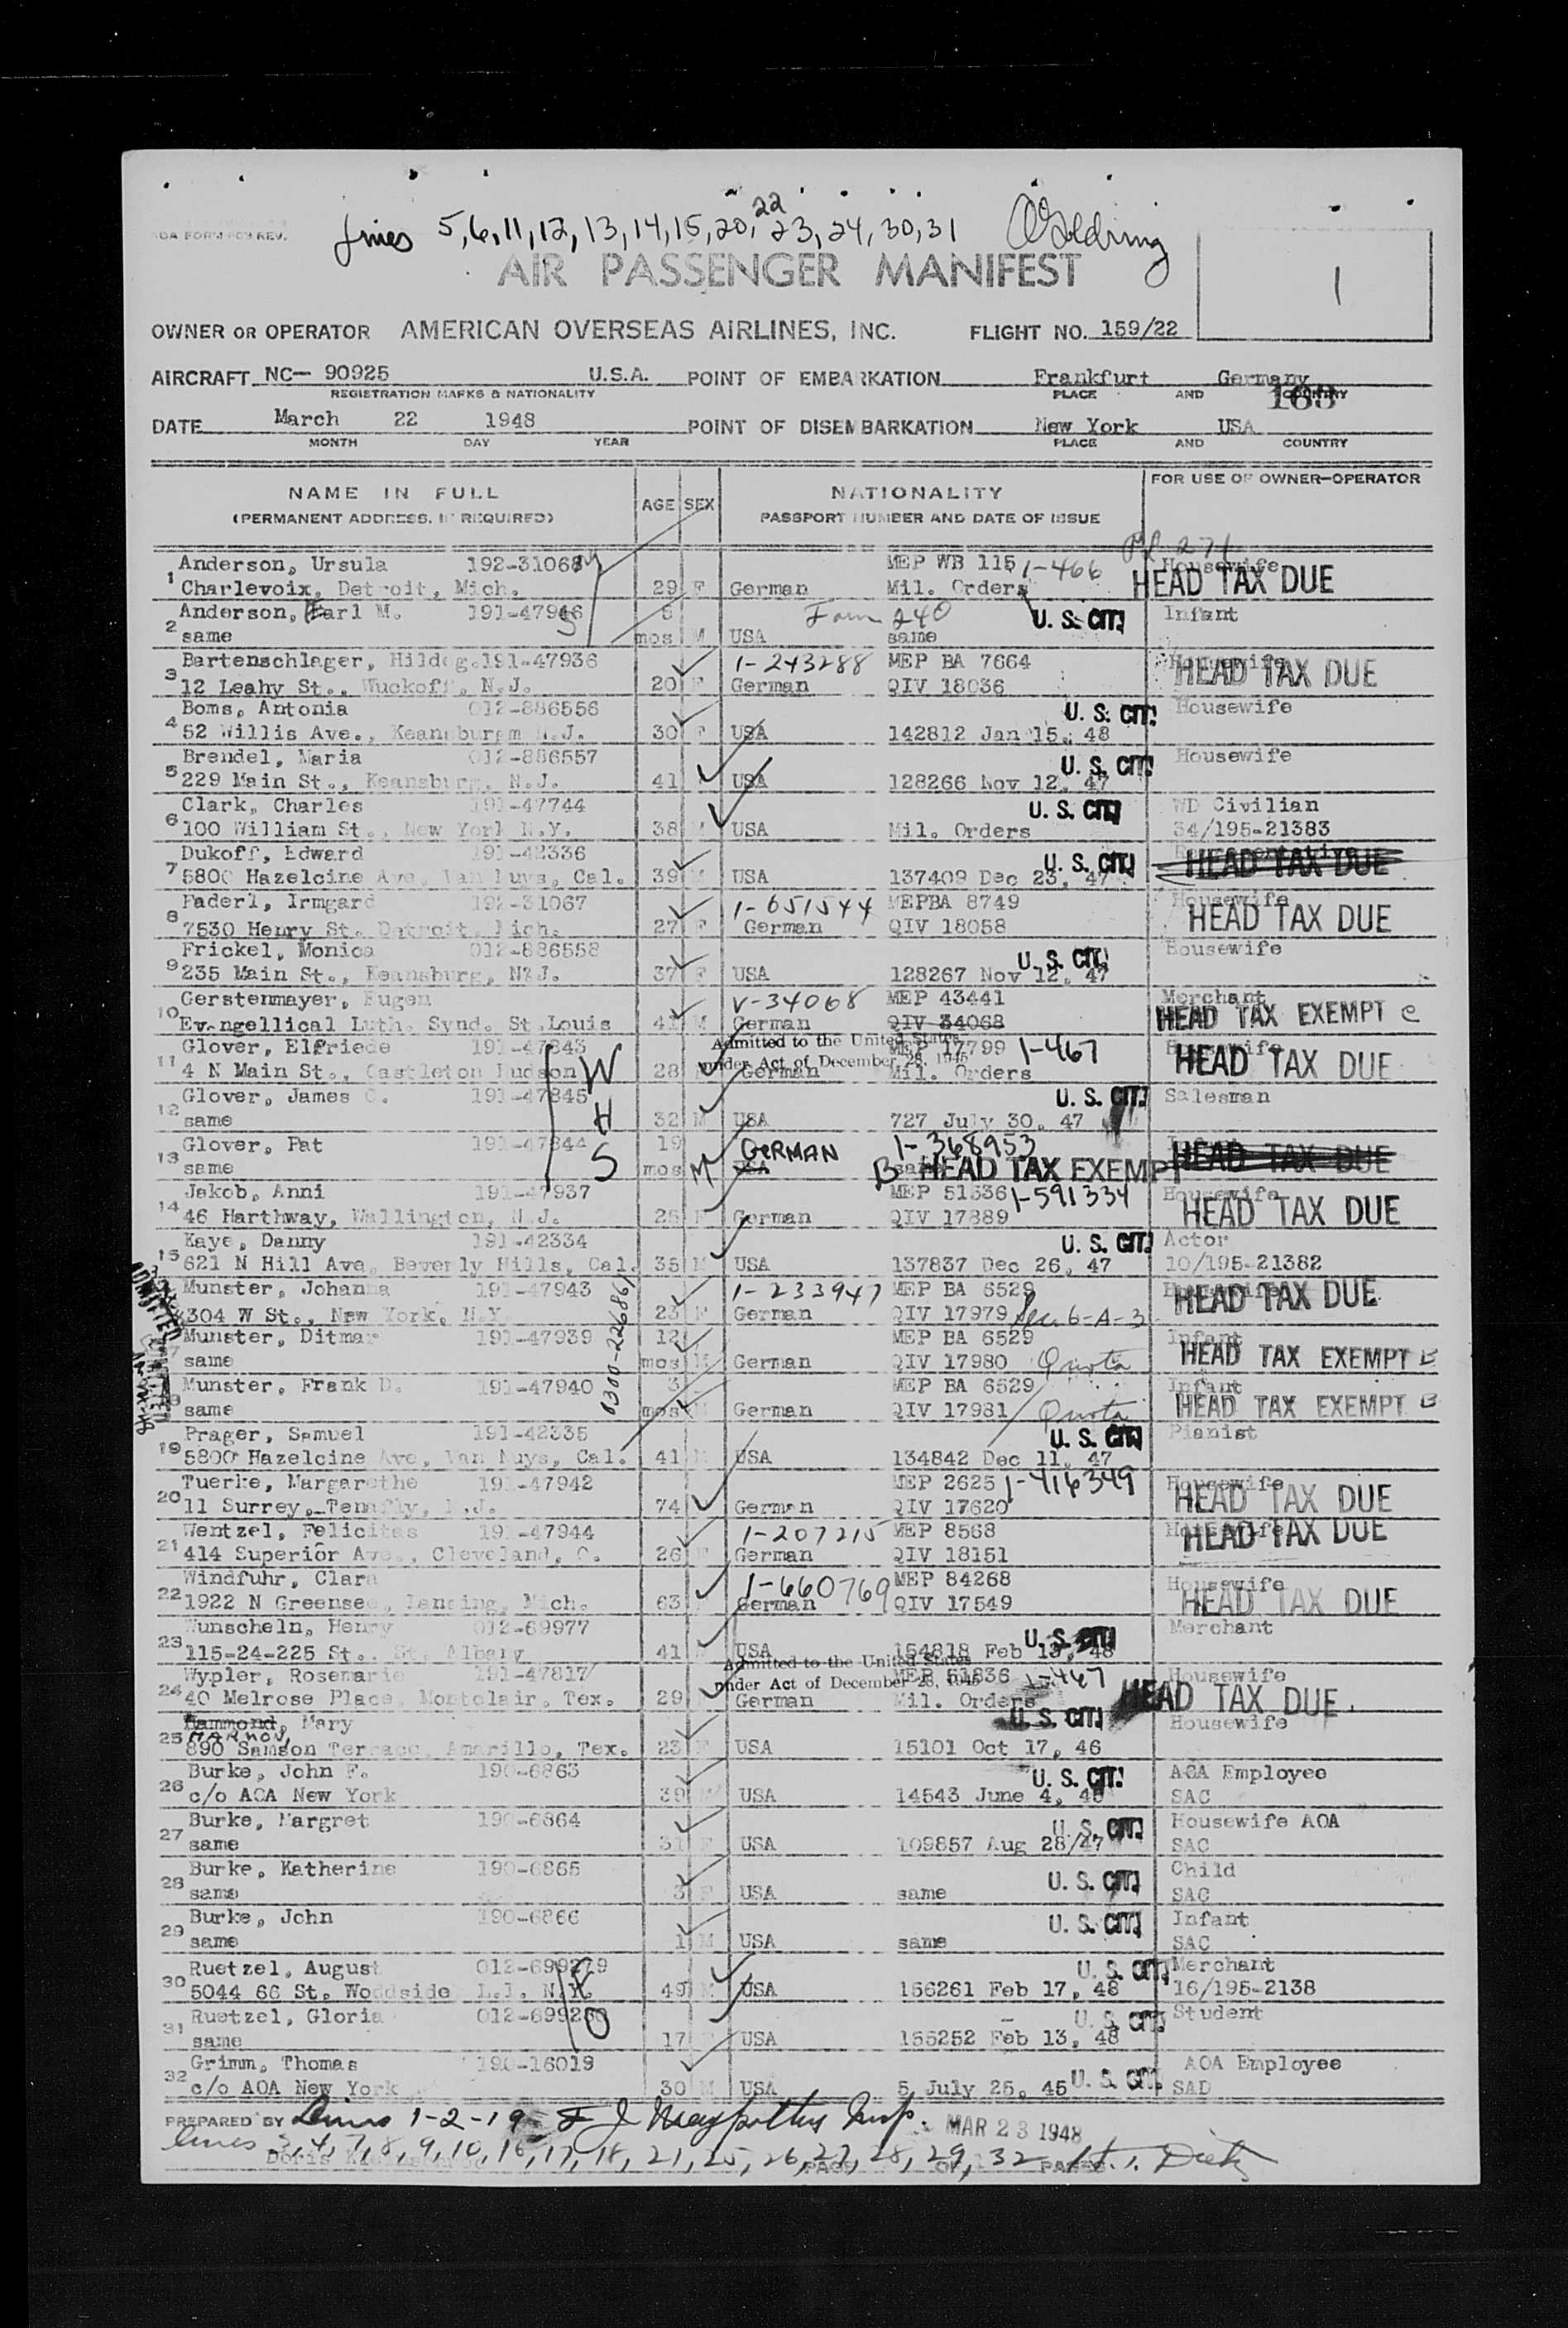 AOA FORM REV.
Lines 5,6,11,12,13,14,15,20,22,23,24,30,31
AIR PASSENGER MANIFEST
1
OWNER OR OPERATOR AMERICAN OVERSEAS AIRLINES, INC. FLIGHT NO. 159/22
AIRCRAFT NC- 90925 U.S.A. POINT OF EMBARKATION Frankfurt Germany
REGISTRATION MARKS & NATIONALITY PLACE AND COUNTRY
163
DATE March 22 1948 POINT OF DISEMBARKATION New York USA
MONTH DAY YEAR PLACE AND COUNTRY
NAME IN FULL AGE SEX NATIONALITY FOR USE OF OWNER-OPERATOR
(PERMANENT ADDRESS, IF REQUIRED) PASSPORT NUMBER AND DATE OF ISSUE
Anderson, Ursula 192-31068 MEP WB 115 1-466 Housewife
1 Charlevoix, Detroit, Mich. 29 F German Mil. Orders HEAD TAX DUE
Anderson, Earl M. 191-47946 8 Form 240 U. S. CIT. Infant
2 same mos M USA same
Bartenschlager, Hildeg. 191-47936 1-243288 MEP BA 7664 Housewife
3 12 Leahy St., Wuckoff, N.J. 20 F German QIV 18036 HEAD TAX DUE
Boms, Antonia 012-886556 U. S. CIT. Housewife
4 52 Willis Ave., Keansburgm N.J. 30 F USA 142812 Jan 15, 48
Brendel, Maria 012-886557 U. S. CIT. Housewife
5 229 Main St., Keansburg, N.J. 41 F USA 128266 Nov 12, 47
Clark, Charles 191-47744 U. S. CIT. WD Civilian
6 100 William St., New York N.Y. 38 M USA Mil. Orders 34/195-21383
Dukoff, Edward 191-42336 U. S. CIT. HEAD TAX DUE
7 5800 Hazelcine Ave, Van Nuys, Cal. 39 M USA 137409 Dec 23, 47
Faderl, Irmgard 192-31067 1-651544 MEPBA 8749 Housewife
8 7530 Henry St. Detroit, Mich. 27 F German QIV 18058 HEAD TAX DUE
Frickel, Monica 012-886558 U. S. CIT. Housewife
9 235 Main St., Keansburg, N?J. 37 F USA 128267 Nov 12, 47
Gerstenmayer, Eugen V-34068 MEP 43441 Merchant
10 Evangellical Luth. Synd. St.Louis 41 M German QIV 34068 HEAD TAX EXEMPT C
Admitted to the United States
under Act of December 28, 1945
Glover, Elfriede 191-47843 MEP 17799 1-467 Housewife
11 4 N Main St., Castleton Hudson W 28 F German Mil. Orders HEAD TAX DUE
Glover, James C. 191-47845 U. S. CIT. Salesman
12 same H 32 M USA 727 July 30, 47
Glover, Pat 191-47844 19 GERMAN 1-368953 HEAD TAX DUE
13 same S mos M USA same B HEAD TAX EXEMPT
Jakob, Anni 191-47937 MEP 51536 1-591334 Housewife
14 46 Harthway, Wallington, N.J. 25 F German QIV 17889 HEAD TAX DUE
Kaye, Danny 191-42334 U. S. CIT. Actor
15 621 N Hill Ave, Beverly Hills, Cal. 35 M USA 137837 Dec 26, 47 10/195-21382
Munster, Johanna 191-47943 1-233947 MEP BA 6529 Housewife
304 W St., New York, N.Y. 23 F German QIV 17979 Sec. 6-A-3 HEAD TAX DUE
0300-226861
ADMITTED
Munster, Ditmar 191-47939 12 MEP BA 6529 Infant
17 same mos M German QIV 17980 Quota HEAD TAX EXEMPT B
Munster, Frank D. 191-47940 3 MEP BA 6529 Infant
18 same mos M German QIV 17981 Quota HEAD TAX EXEMPT B
Prager, Samuel 191-42335 U. S. CIT. Pianist
19 5800 Hazelcine Ave, Van Nuys, Cal. 41 M USA 134842 Dec 11, 47
Tuerke, Margarethe 191-47942 MEP 2625 1-416349 Housewife
20 11 Surrey, Tenafly, N.J. 74 F German QIV 17620 HEAD TAX DUE
Wentzel, Felicitas 191-47944 1-207215 MEP 8568 Housewife
21 414 Superior Ave., Cleveland, O. 26 F German QIV 18151 HEAD TAX DUE
Windfuhr, Clara 1-660769 MEP 84268 Housewife
22 1922 N Greensee, Lansing, Mich. 63 F German QIV 17549 HEAD TAX DUE
Wunscheln, Henry 012-69977 U. S. CIT. Merchant
23 115-24-225 St., St. Albany 41 M USA 154818 Feb 13, 48
Admitted to the United States
under Act of December 28, 1945
Wypler, Rosemarie 191-47817 MEP 51836 1-467 Housewife
24 40 Melrose Place, Montclair, Tex. 29 F German Mil. Orders HEAD TAX DUE
Hammond, Mary U. S. CIT. Housewife
HARMON,
25 890 Samson Terrace, Amarillo, Tex. 23 F USA 15101 Oct 17, 46
Burke, John F. 190-6863 U. S. CIT. AOA Employee
26 c/o AOA New York 39 M USA 14543 June 4, 45 SAC
Burke, Margret 190-6864 U. S. CIT. Housewife AOA
27 same 31 F USA 109857 Aug 28/47 SAC
Burke, Katherine 190-6865 U. S. CIT. Child
28 same 3 F USA same SAC
Burke, John 190-6866 U. S. CIT. Infant
29 same 1 M USA same SAC
Ruetzel, August 012-699279 U. S. CIT. Merchant
30 5044 66 St. Woddside L.I. N.Y. 49 M USA 156261 Feb 17, 48 16/195-2138
Ruetzel, Gloria 012-699280 U. S. CIT. Student
31 same 17 F USA 155252 Feb 13, 48
Grimm, Thomas 190-16019 AOA Employee
32 c/o AOA New York 30 M USA 5 July 25, 45 U. S. CIT. SAD
PREPARED BY Lines 1-2-19 Insp. MAR 23 1948
lines 3,4,7,8,9,10,16,17,18,21,25,26,27,28,29,32
Doris PAGE OF PAGES